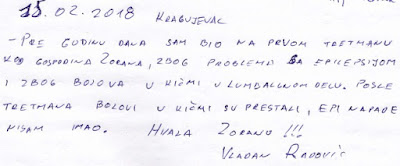 15.02.2018 KRAGUJEVAC
- PRE GODINU DANA SAM BIO NA PRVOM TRETMANU
KOD GOSPODINA ZORANA, ZBOG PROBLEMA SA EPILEPSIJOM
I ZBOG BOLOVA U KIČMI U LUMBALNOM DELU. POSLE
TRETMANA BOLOVI U KIČMI SU PRESTALI, EPI NAPADE
NISAM IMAO. HVALA ZORANU !!!
VLADAN RADOVIĆ